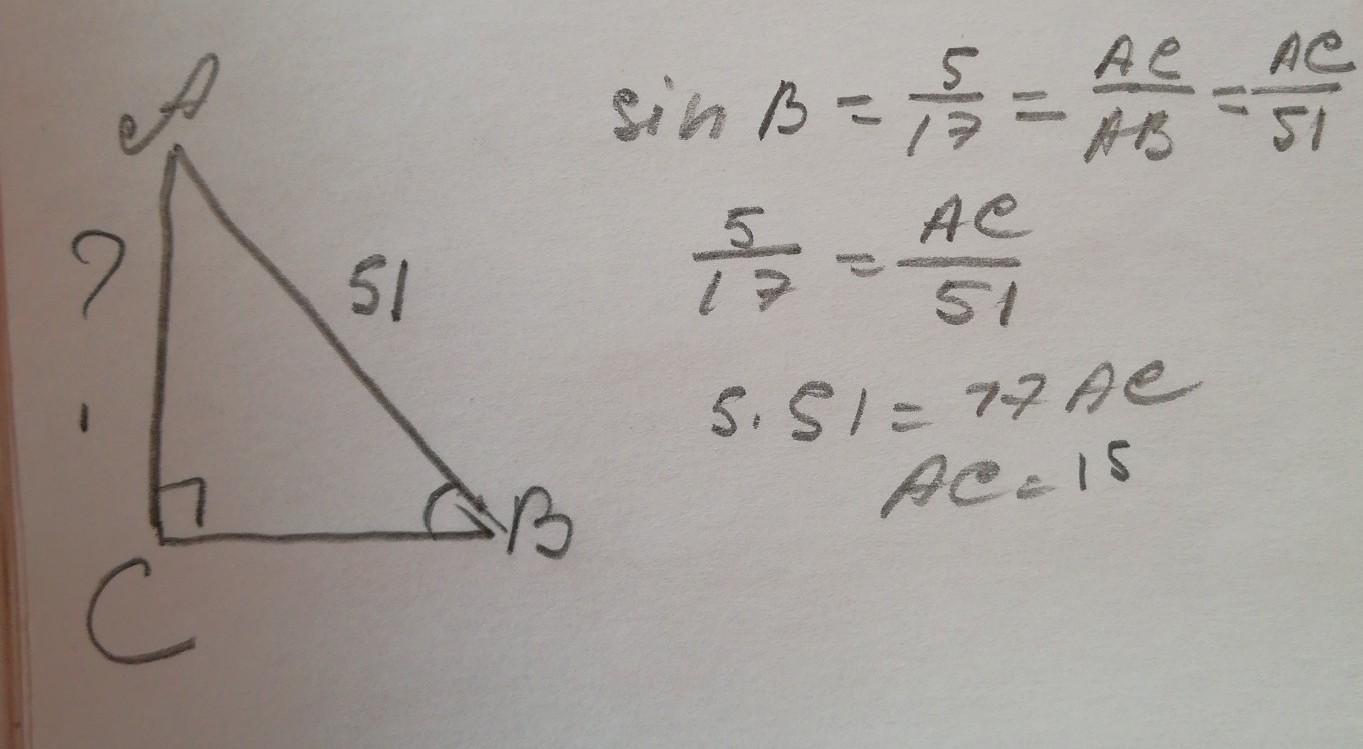 A
?
51
C
B
sin B = 5/17 = AC/AB = AC/51
5/17 = AC/51
5·51 = 17AC
AC = 15